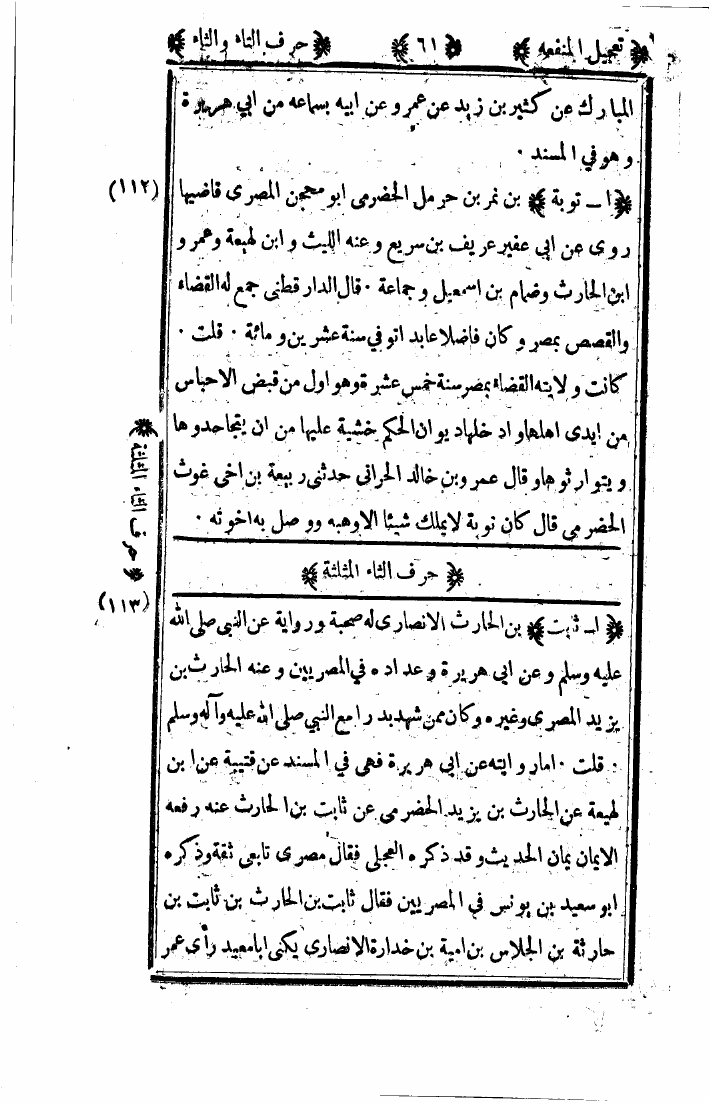 ﴿ تعجيل المنفعه ﴾ ﴿ ٦١ ﴾ ﴿ حرف التاء والثاء ﴾
المبارك عن كثير بن زيد عن عمرو عن ابيه بسماعه من ابي هريرة
وهو في المسند ٠
﴿ ا ـ توبة ﴾ بن نمر بن حرمل الحضرمى ابو محجن المصرى قاضيها (١١٢)
روى عن ابى عفير عريف بن سريع وعنه الليث وابن لهيعة وعمرو
ابن الحارث وضمام بن اسمعيل وجماعة ٠ قال الدارقطنى جمع له القضاء
والقصص بمصر وكان فاضلا عابدا توفي سنة عشرين ومائة ٠ قلت ٠
كانت ولايته القضاء بمصر سنة خمس عشرة وهو اول من قبض الاحباس
من ايدى اهلها وادخلها ديوان الحكم خشية عليها من ان يتجاحدوها
ويتوارثوها وقال عمرو بن خالد الحرانى حدثنى ربيعة بن اخى غوث
الحضرمى قال كان توبة لا يملك شيئا الا وهبه ووصل به اخوته ٠
﴿ حرف الثاء المثلثة ﴾
﴿ حرف الثاء المثلثة ﴾
﴿ ا ـ ثابت ﴾ بن الحارث الانصارى له صحبة ورواية عن النبي صلى الله (١١٣)
عليه وسلم وعن ابى هريرة وعداده في المصريين وعنه الحارث بن
يزيد المصرى وغيره وكان ممن شهد بدرا مع النبي صلى الله عليه وآله وسلم
٠ قلت ٠ اما روايته عن ابى هريرة فهى في المسند عن قتيبة عن ابن
لهيعة عن الحارث بن يزيد الحضرمى عن ثابت بن الحارث عنه رفعه
الايمان يمان الحديث وقد ذكره العجلى فقال مصرى تابعى ثقة وذكره
ابو سعيد بن يونس في المصريين فقال ثابت بن الحارث بن ثابت بن
حارثة بن الجلاس بن امية بن خدارة الانصارى يكنى ابا معبد رأى عمر